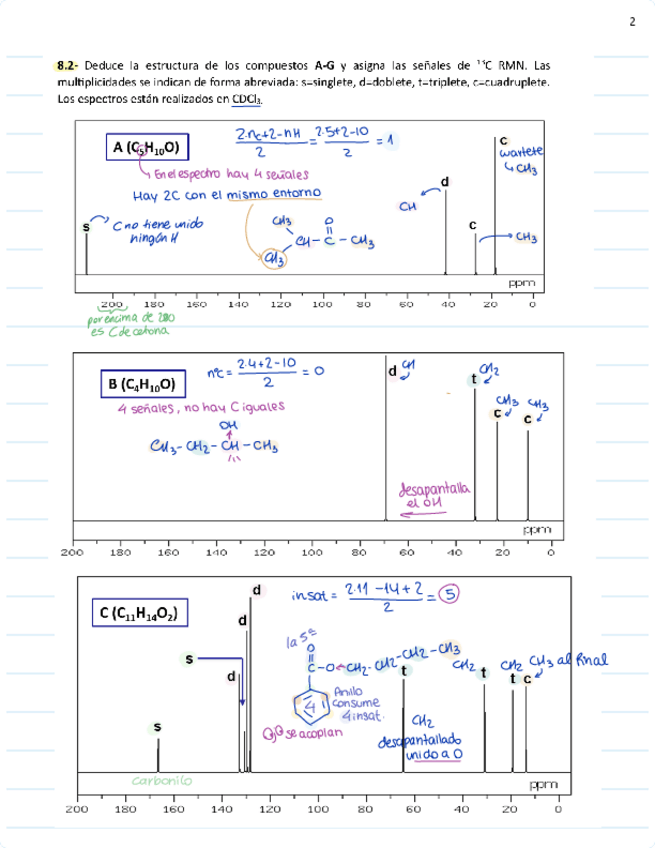 2
8.2- Deduce la estructura de los compuestos A-G y asigna las señales de ¹³C RMN. Las
multiplicidades se indican de forma abreviada: s=singlete, d=doblete, t=triplete, c=cuadruplete.
Los espectros están realizados en CDCl₃.
A (C₅H₁₀O)
2·nc+2-nH / 2 = 2·5+2-10 / 2 = 1
En el espectro hay 4 señales
Hay 2C con el mismo entorno
c
cuartete
↳ CH₃
d
CH
s
C no tiene unido
ningún H
CH₃
O
CH - C - CH₃
CH₃
c
CH₃
ppm
200 180 160 140 120 100 80 60 40 20 0
por encima de 200
es C de cetona
B (C₄H₁₀O)
nºc = 2·4+2-10 / 2 = 0
4 señales, no hay C iguales
OH
CH₃-CH₂-CH-CH₃
d CH
t CH₂
CH₃ CH₃
c c
desapantalla
el OH
ppm
200 180 160 140 120 100 80 60 40 20 0
C (C₁₁H₁₄O₂)
insat = 2·11-14+2 / 2 = 5
d
d
s
d
s
la 5ª
O
C-O-CH₂-CH₂-CH₂-CH₃
4
Anillo
consume
4 insat.
se acoplan
t
CH₂
desapantallado
unido a O
CH₂ t
CH₂ t
CH₃ al final
c
Carbonilo
ppm
200 180 160 140 120 100 80 60 40 20 0